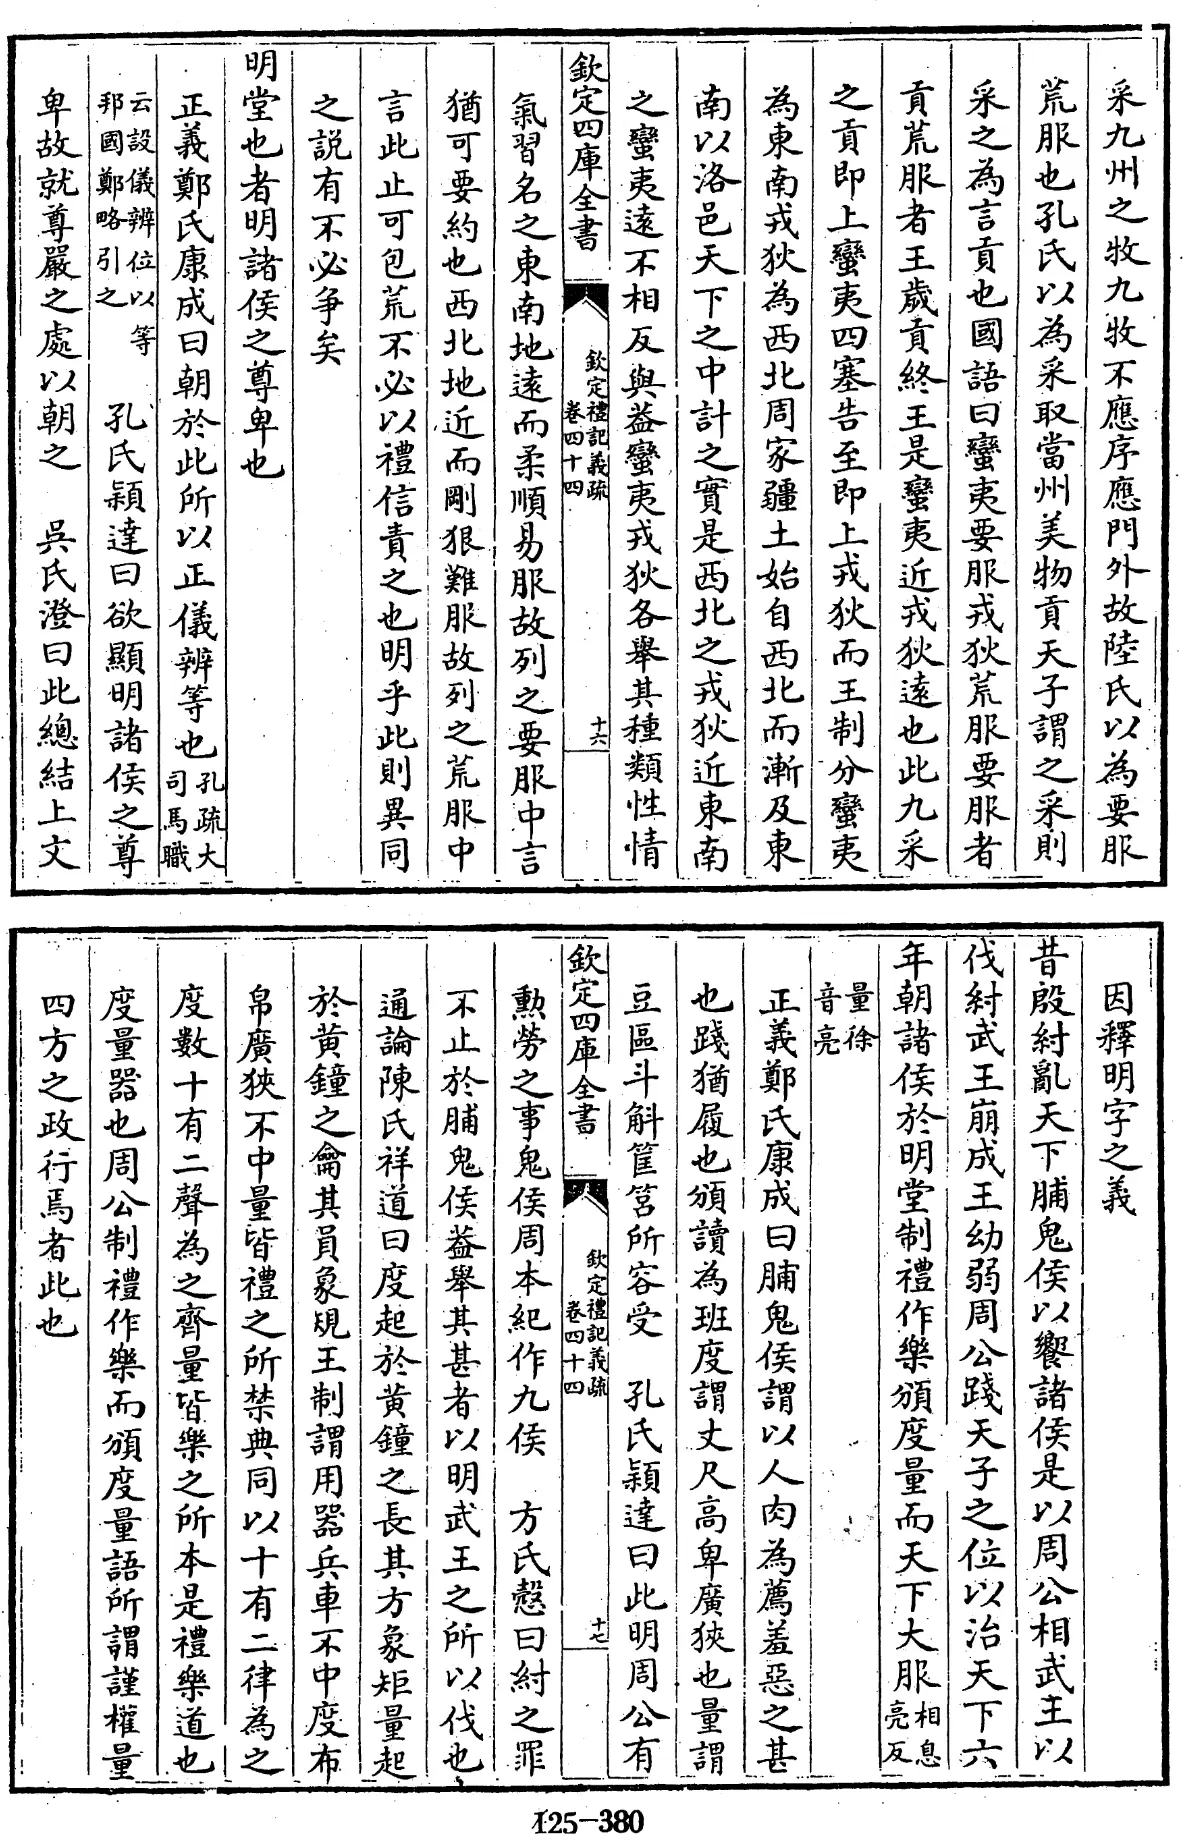 采九州之牧九牧不應序應門外故陸氏以為要服
荒服也孔氏以為采取當州美物貢天子謂之采則
采之為言貢也國語曰蠻夷要服戎狄荒服要服者
貢荒服者王歲貢終王是蠻夷近戎狄遠也此九采
之貢即上蠻夷四塞告至即上戎狄而王制分蠻夷
為東南戎狄為西北周家疆土始自西北而漸及東
南以洛邑天下之中計之實是西北之戎狄近東南
之蠻夷遠不相反與葢蠻夷戎狄各舉其種類性情
欽定四庫全書
欽定禮記義疏
卷四十四
十六
氣習名之東南地遠而柔順易服故列之要服中言
猶可要約也西北地近而剛狠難服故列之荒服中
言此止可包荒不必以禮信責之也明乎此則異同
之説有不必争矣
明堂也者明諸侯之尊卑也
正義鄭氏康成曰朝於此所以正儀辨等也孔疏大
司馬職
云設儀辨位以等
邦國鄭略引之
孔氏穎達曰欲顯明諸侯之尊
卑故就尊嚴之處以朝之 吳氏澄曰此總結上文
因釋明字之義
昔殷紂亂天下脯鬼侯以饗諸侯是以周公相武王以
伐紂武王崩成王幼弱周公踐天子之位以治天下六
年朝諸侯於明堂制禮作樂頒度量而天下大服相息
亮反
量徐
音亮
正義鄭氏康成曰脯鬼侯謂以人肉為薦羞惡之甚
也踐猶履也頒讀為班度謂丈尺高卑廣狹也量謂
豆區斗斛筐筥所容受 孔氏穎達曰此明周公有
欽定四庫全書
欽定禮記義疏
卷四十四
十七
勲勞之事鬼侯周本紀作九侯 方氏慤曰紂之罪
不止於脯鬼侯葢舉其甚者以明武王之所以伐也
通論陳氏祥道曰度起於黃鐘之長其方象矩量起
於黃鐘之龠其員象規王制謂用器兵車不中度布
帛廣狹不中量皆禮之所禁典同以十有二律為之
度數十有二聲為之齊量皆樂之所本是禮樂道也
度量器也周公制禮作樂而頒度量語所謂謹權量
四方之政行焉者此也
125-380